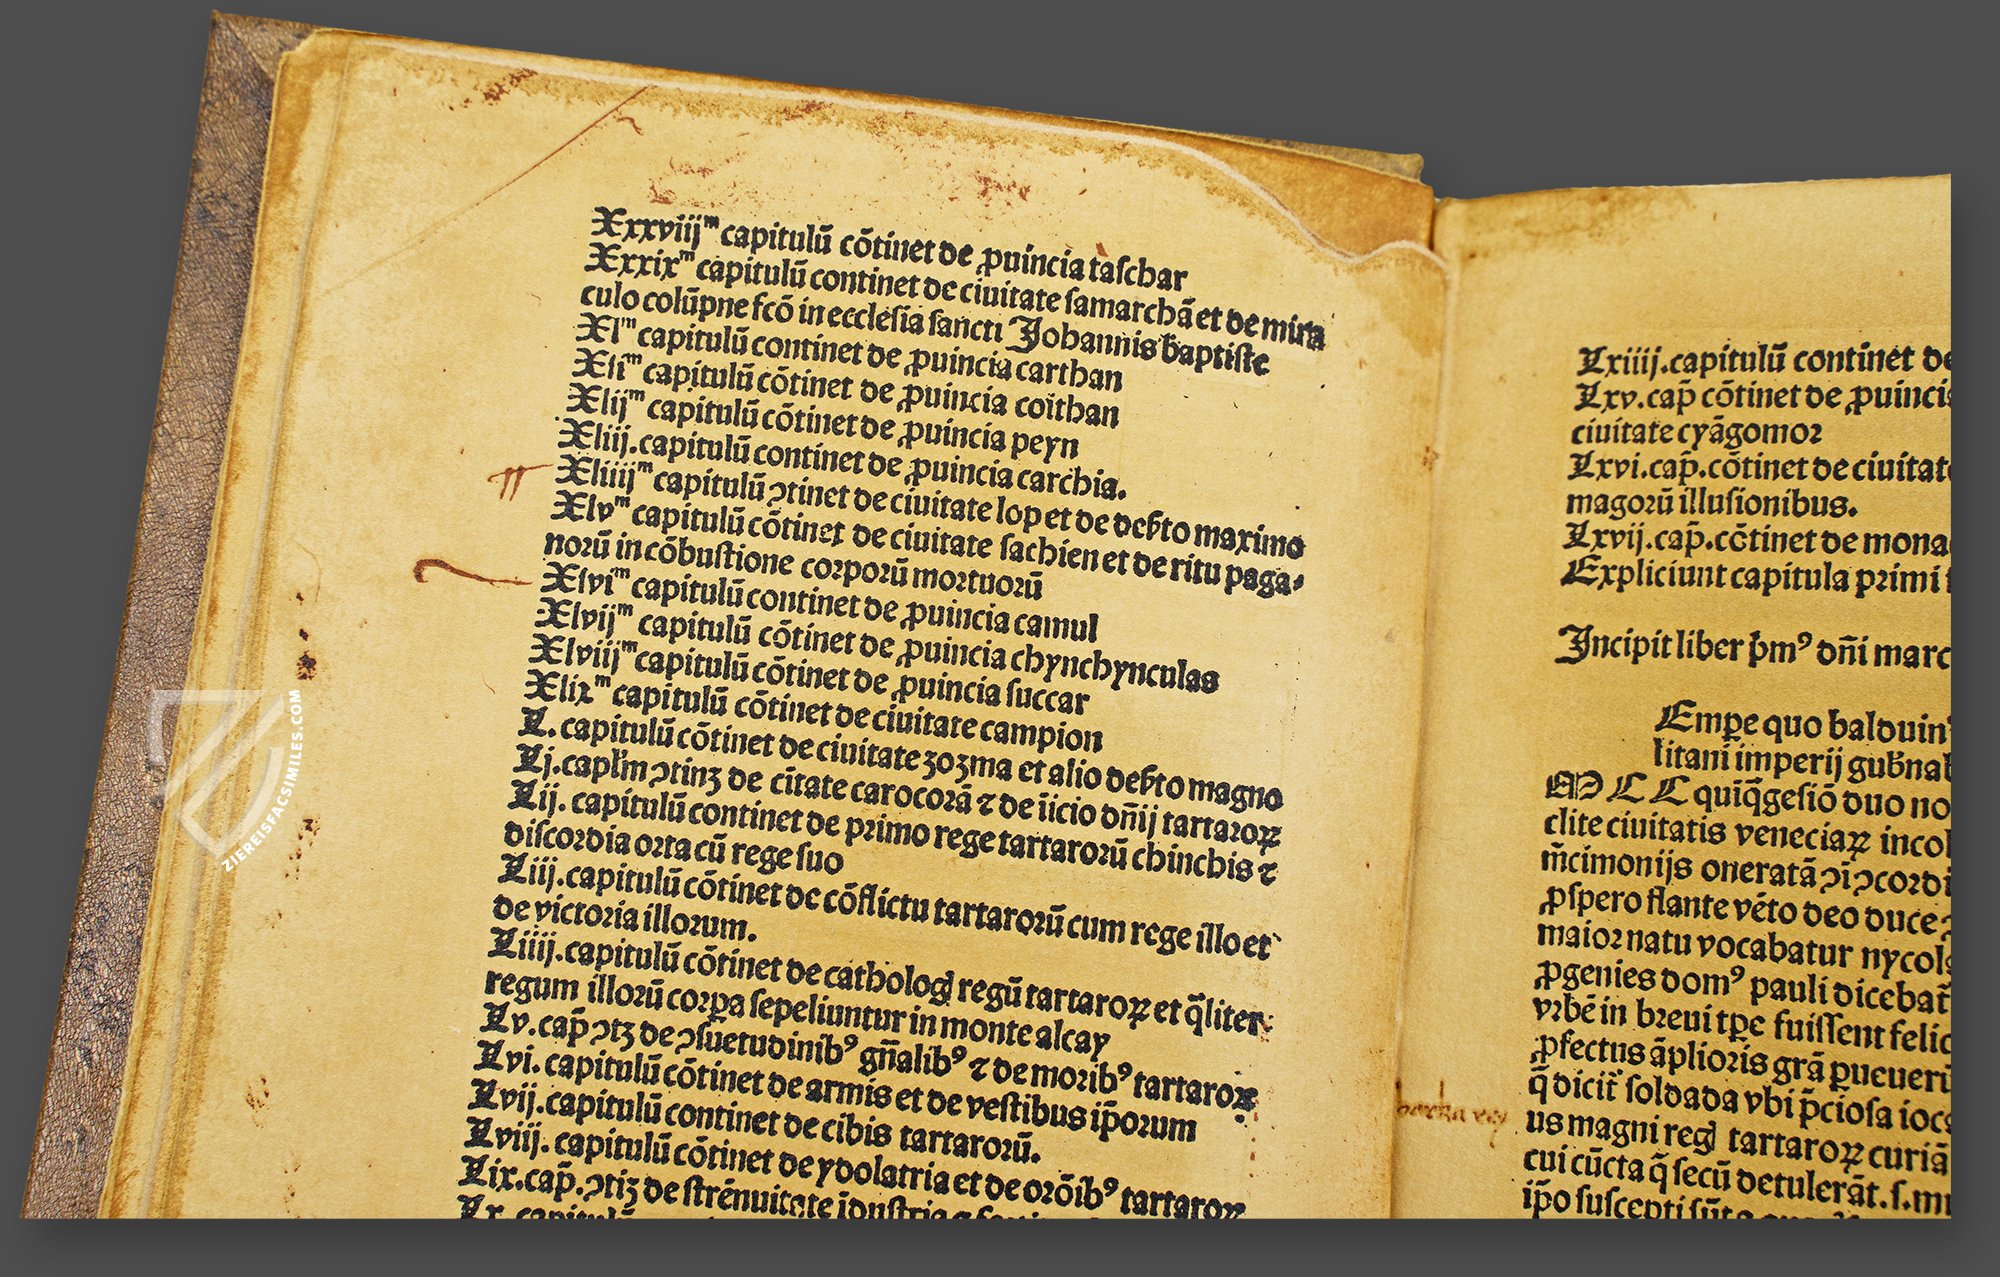 Xxxviijᵐ capitulū cōtinet de ꝓuincia taſchar
Xxxixᵐ capitulū continet de ciuitate ſamarchā et de mira
culo colūpne fcō in eccleſia ſancti Johannis baptiſte
Xlᵐ capitulū continet de ꝓuincia carthan
Xliᵐ capitulū cōtinet de ꝓuincia coithan
Xlijᵐ capitulū cōtinet de ꝓuincia peyn
Xliij.capitulū continet de ꝓuincia carchia.
Xliiijᵐ capitulū ↄtinet de ciuitate lop et de deẜto maximo
Xlvᵐ capitulū cōtinet de ciuitate ſachien et de ritu paga⸗
norū in cōbuſtione corporū mortuorū
Xlviᵐ capitulū continet de ꝓuincia camul
Xlvijᵐ capitulū cōtinet de ꝓuincia chynchynculas
Xlviijᵐ capitulū cōtinet de ꝓuincia ſuccar
Xlixᵐ capitulū cōtinet de ciuitate campion
L. capitulū cōtinet de ciuitate zozma et alio deẜto magno
Lj.capl̄m ↄtinꝫ de cītate carocorā ⁊ de īicio dn̄ij tartaroꝝ
Lij. capitulū continet de primo rege tartarorū chinchis ⁊
diſcordia orta cū rege ſuo
Liij.capitulū cōtinet de cōflictu tartarorū cum rege illo et
de victoria illorum.
Liiij.capitulū cōtinet de catholog̣ regū tartaroꝝ et q̄liter
regum illorū corꝑa ſepeliuntur in monte alcay
Lv.cap̄ ↄtꝫ de ↄſuetudinibꝰ gn̄alibꝰ ⁊ de moribꝰ tartaroꝝ
Lvi. capitulū cōtinet de armis et de veſtibus ip̄orum
Lvij.capitulū continet de cibis tartarorū.
Lviij. capitulū cōtinet de ydolatria et de orōibꝰ tartaroꝝ
Lix.cap̄.ↄtiꝫ de ſtrēnuitate īduſtria
Lx. capitulū
Lxiiij.capitulū continet de
Lxv.cap̄ cōtinet de ꝓuincia
ciuitate cyāgomor
Lxvi.cap̄.cōtinet de ciuitate
magorū illuſionibus.
Lxvij.cap̄.cōtinet de mona
Expliciunt capitula primi
Incipit liber p̄mꝰ dn̄i marc
Empe quo balduin
litani imperij gub̄na
M C C quīq̄geſiō duo no
clite ciuitatis veneciaꝝ incol
m̄cimonijs oneratā ↄi ↄcordi
ꝓſpero flante vēto deo duce
maior natu vocabatur nycol
ꝓgenies domꝰ pauli dicebat̄
vrbē in breui tꝑe fuiſſent felic
ꝓfectus āplioris grā ꝓueuerū
q̄ dicit̄ ſoldada vbi p̄cioſa ioc
us magni reg̣ tartaroꝝ curiā
cui cūcta q̄ ſecū detulerāt.ſ.mi
ip̄o ſuſcepti ſūt
ZIEREISFACSIMILES.COM